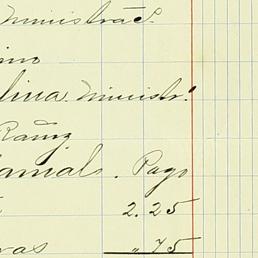 Ministrac.
ino
lina. Ministr.
Ramz
amals. Pago
2.25
vas " 75